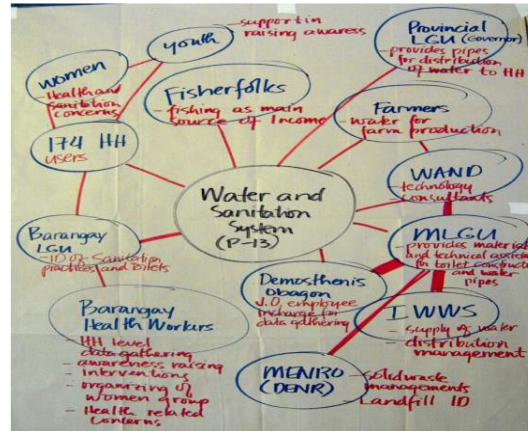 youth
- support in
raising awaress
Provincial
LGU (Governor)
- provides pipes
for distribution
of water to HH
women
- Health and
sanitation
concerns
Fisherfolks
- fishing as main
source of Income
Farmers
- water for
farm production
174 HH
users
WAND
- technology
- consultants
Water and
Sanitation
System
(P-13)
Barangay
LGU
- ID of Sanitation
practices and toilets
MLGU
- provides material
and technical assista
in toilet constructi
and water
pipes
Demosthenis
Obagon
employee
incharge for
data gathering
IWWS
- supply of water
- distribution
management
Barangay
Health Workers
- HH level
data gathering
- awareness raising
- Interventions
- organizing of
women group
- Health related
concerns
MENRO
(DENR)
- solid waste
managements
- Landfill ID